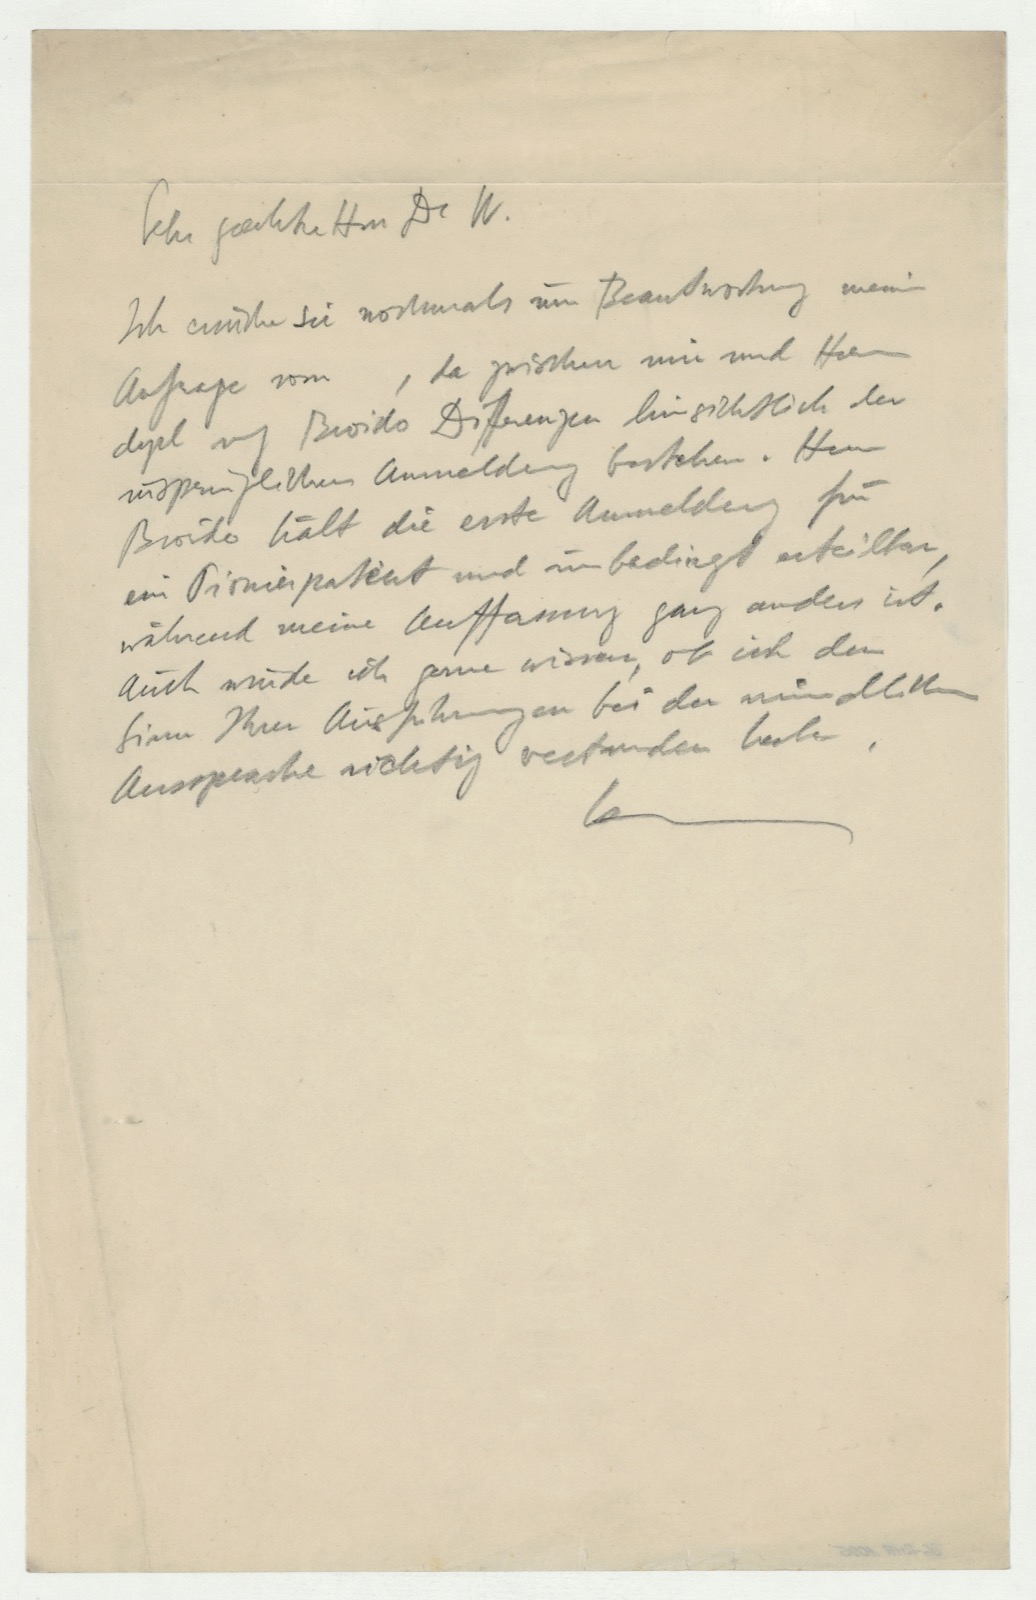 Sehr geehrter Herr Dr W.
Ich ersuche Sie nochmals um Beantwortung meiner
Anfrage vom , da zwischen mir und Herrn
dipl ing Broido Differenzen hinsichtlich der
ursprünglichen Anmeldung bestehen. Herr
Broido hält die erste Anmeldung für
ein Pionierpatent und unbedingt erteilbar,
während meine Auffassung ganz anders ist.
Auch würde ich gerne wissen, ob ich den
Sinn Ihrer Ausführungen bei der mündlichen
Aussprache richtig verstanden habe.